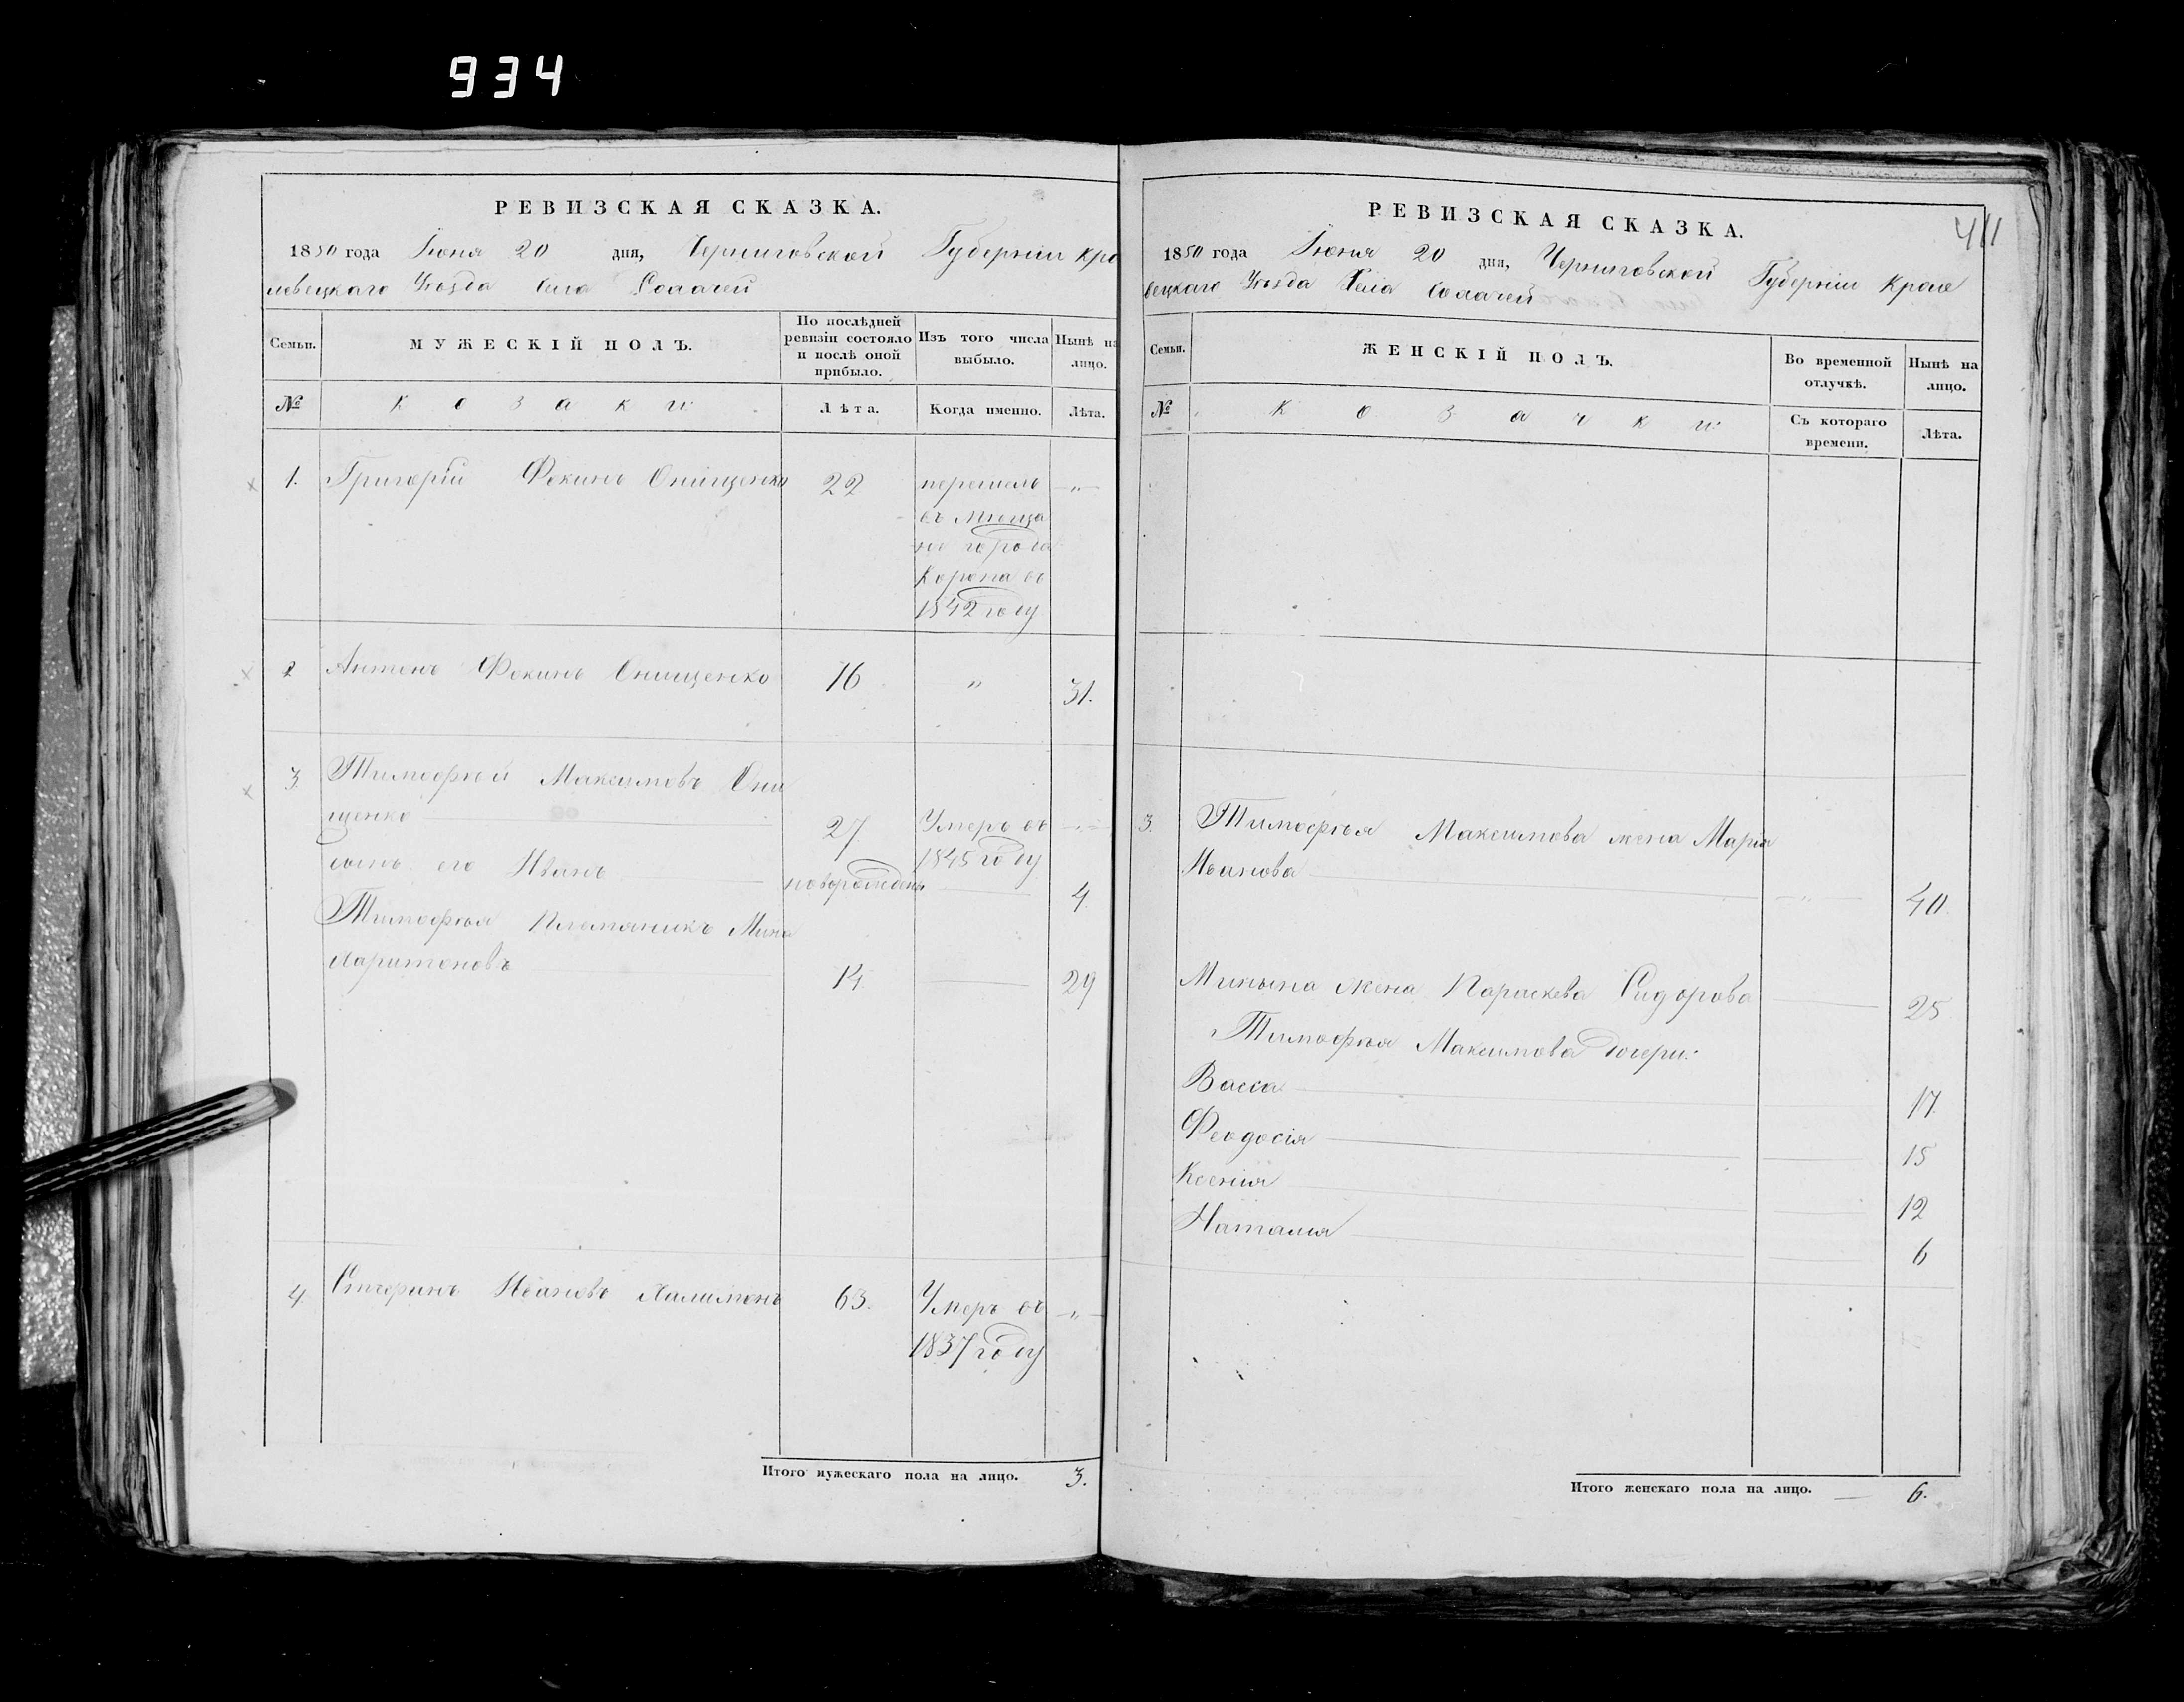 934
РЕВИЗСКАЯ СКАЗКА.
1850 года Іюня 20 дня, Черниговской Губерніи Кро
левецкаго Уѣзда Села
Семьи.
МУЖЕСКІЙ ПОЛЪ.
По послѣдней ревизіи состояло и послѣ оной прибыло.
Изъ того числа выбыло.
Нынѣ на лицо.
№
Козаки
Лѣта.
Когда именно.
Лѣта.
1. Григорій Фокинъ Онищенко 22 перешелъ — „ —
въ Мѣща
не города
Коропа въ
1842 году
2 Антонъ Фокинъ Онищенко 16 „ 31.
3. Тимофѣй Максимовъ Они
щенко 27. Умеръ въ — „ —
1845 году
сынъ его Иванъ новорожденъ 4.
Тимофѣя Племяникъ Мина
Харитоновъ 14. 29
4. Иванов 63. Умеръ въ — „ —
1837 году
Итого мужескаго пола на лицо. 3.
411
РЕВИЗСКАЯ СКАЗКА.
1850 года Іюня 20 дня, Черниговской Губерніи Кроле
вецкаго Уѣзда Села
Семьи.
ЖЕНСКІЙ ПОЛЪ.
Во временной отлучкѣ.
Нынѣ на лицо.
№
Козачки
Съ котораго времени.
Лѣта.
3. Тимофѣя Максимова жена Марія
Иванова — „ — 40.
Минина жена Параскева Сидорова 25
Тимофѣя Максимова дочери:
Васса 17.
Феодосія 15
Ксенія 12
Наталія 6
Итого женскаго пола на лицо. — 6.